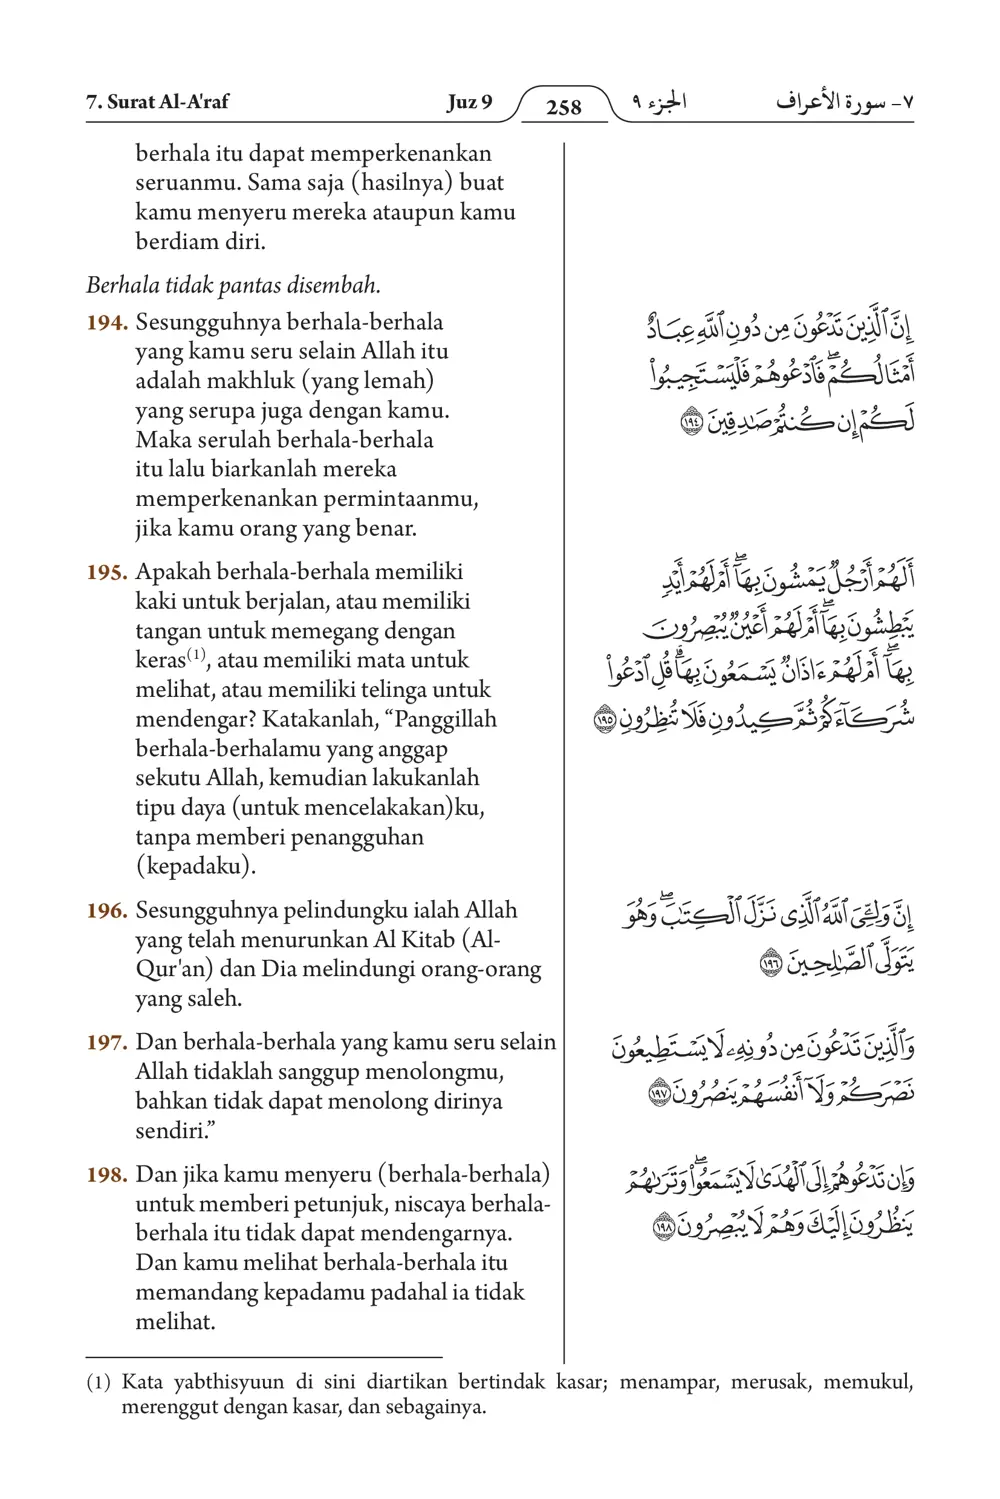 7. Surat Al-A'raf
Juz 9
258
الجزء ٩
٧- سورة الأعراف
berhala itu dapat memperkenankan
seruanmu. Sama saja (hasilnya) buat
kamu menyeru mereka ataupun kamu
berdiam diri.
Berhala tidak pantas disembah.
194. Sesungguhnya berhala-berhala
yang kamu seru selain Allah itu
adalah makhluk (yang lemah)
yang serupa juga dengan kamu.
Maka serulah berhala-berhala
itu lalu biarkanlah mereka
memperkenankan permintaanmu,
jika kamu orang yang benar.
إِنَّ ٱلَّذِينَ تَدْعُونَ مِن دُونِ ٱللَّهِ عِبَادٌ
أَمْثَالُكُمْ ۖ فَٱدْعُوهُمْ فَلْيَسْتَجِيبُوا۟
لَكُمْ إِن كُنتُمْ صَـٰدِقِينَ ١٩٤
195. Apakah berhala-berhala memiliki
kaki untuk berjalan, atau memiliki
tangan untuk memegang dengan
keras(1), atau memiliki mata untuk
melihat, atau memiliki telinga untuk
mendengar? Katakanlah, “Panggillah
berhala-berhalamu yang anggap
sekutu Allah, kemudian lakukanlah
tipu daya (untuk mencelakakan)ku,
tanpa memberi penangguhan
(kepadaku).
أَلَهُمْ أَرْجُلٌ يَمْشُونَ بِهَآ ۖ أَمْ لَهُمْ أَيْدٍ
يَبْطِشُونَ بِهَآ ۖ أَمْ لَهُمْ أَعْيُنٌ يُبْصِرُونَ
بِهَآ ۖ أَمْ لَهُمْ ءَاذَانٌ يَسْمَعُونَ بِهَا ۗ قُلِ ٱدْعُوا۟
شُرَكَآءَكُمْ ثُمَّ كِيدُونِ فَلَا تُنظِرُونِ ١٩٥
196. Sesungguhnya pelindungku ialah Allah
yang telah menurunkan Al Kitab (Al-
Qur'an) dan Dia melindungi orang-orang
yang saleh.
إِنَّ وَلِـِّۧىَ ٱللَّهُ ٱلَّذِى نَزَّلَ ٱلْكِتَـٰبَ ۖ وَهُوَ
يَتَوَلَّى ٱلصَّـٰلِحِينَ ١٩٦
197. Dan berhala-berhala yang kamu seru selain
Allah tidaklah sanggup menolongmu,
bahkan tidak dapat menolong dirinya
sendiri.”
وَٱلَّذِينَ تَدْعُونَ مِن دُونِهِۦ لَا يَسْتَطِيعُونَ
نَصْرَكُمْ وَلَآ أَنفُسَهُمْ يَنصُرُونَ ١٩٧
198. Dan jika kamu menyeru (berhala-berhala)
untuk memberi petunjuk, niscaya berhala-
berhala itu tidak dapat mendengarnya.
Dan kamu melihat berhala-berhala itu
memandang kepadamu padahal ia tidak
melihat.
وَإِن تَدْعُوهُمْ إِلَى ٱلْهُدَىٰ لَا يَسْمَعُوا۟ ۖ وَتَرَىٰهُمْ
يَنظُرُونَ إِلَيْكَ وَهُمْ لَا يُبْصِرُونَ ١٩٨
(1) Kata yabthisyuun di sini diartikan bertindak kasar; menampar, merusak, memukul,
merenggut dengan kasar, dan sebagainya.